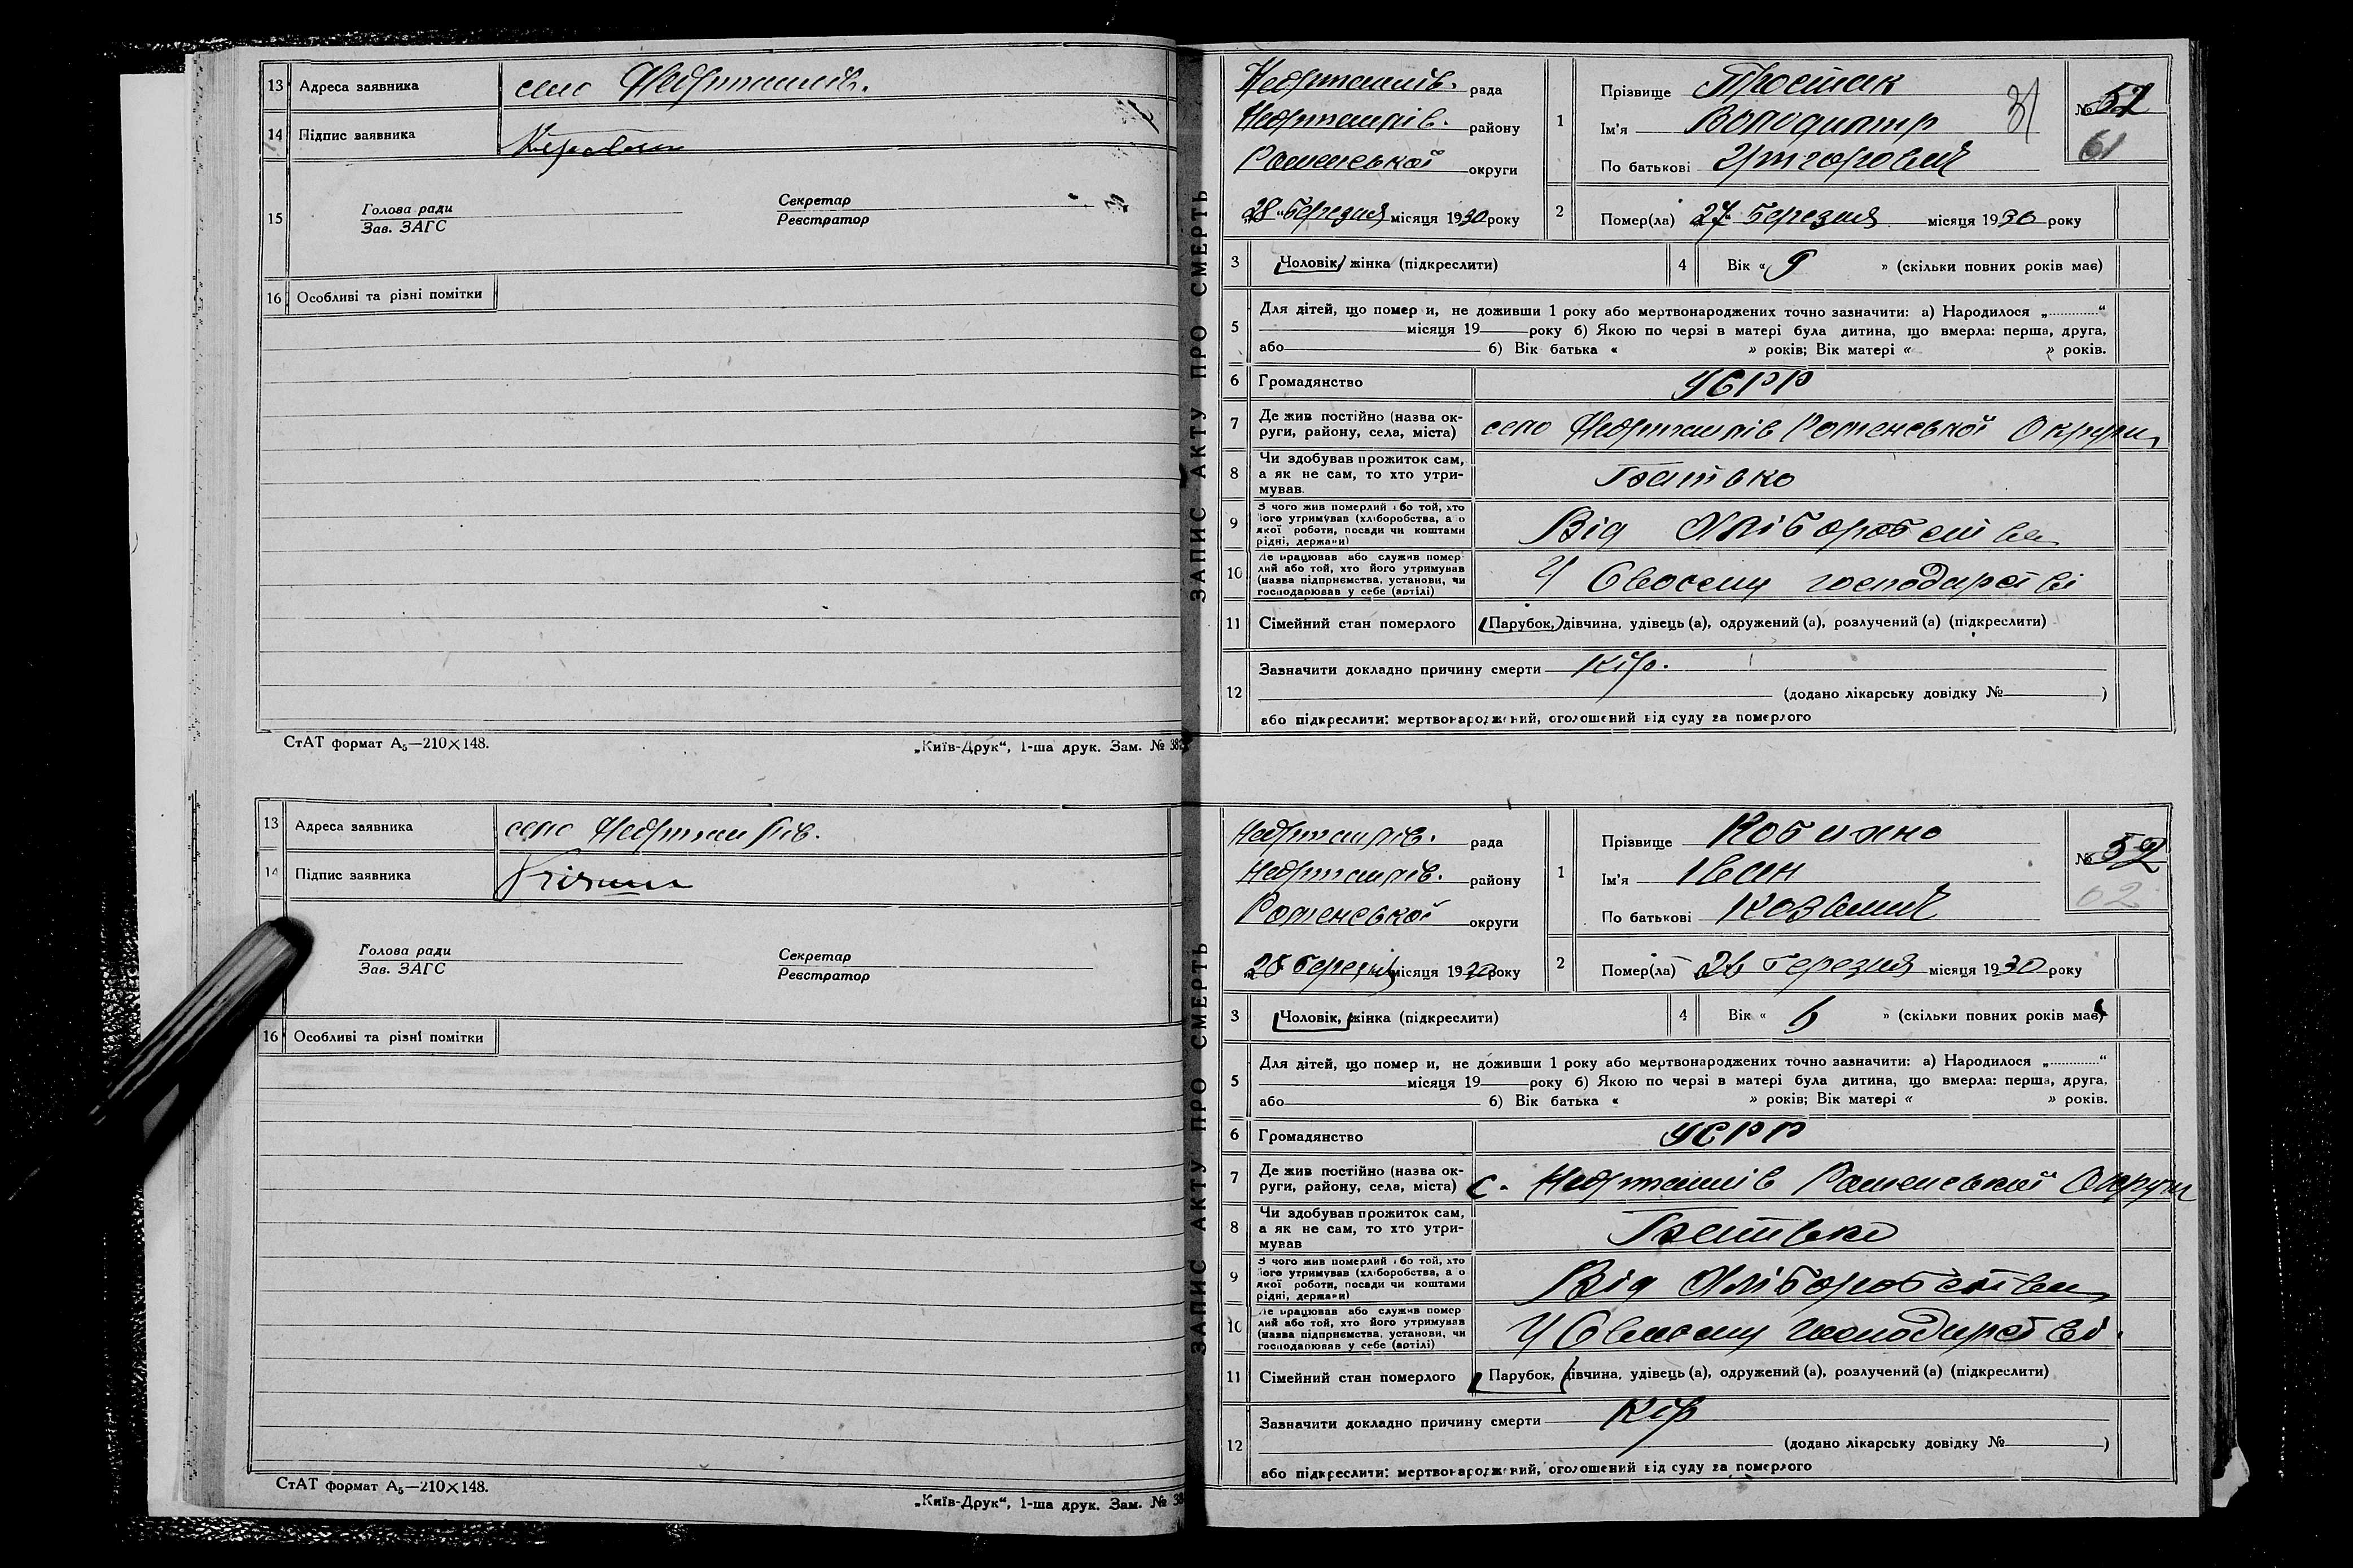 13 Адреса заявника село Недригайлів.
14 Підпис заявника
15 Голова ради Секретар
Зав. ЗАГС Реєстратор
16 Особливі та різні помітки
СтАТ формат А₅—210×148. „Київ-Друк“, 1-ша друк. Зам. № 38
13 Адреса заявника село Недригайлів.
14 Підпис заявника
Голова ради Секретар
Зав. ЗАГС Реєстратор
16 Особливі та різні помітки
СтАТ формат А₅—210×148.
„Київ-Друк“, 1-ша друк. Зам. № 38
ЗАПИС АКТУ ПРО СМЕРТЬ
Недригайлів. рада
Недригайлів. району
Роменської округи
„28“ березня місяця 1930 року
1 Прізвище Простак
Ім'я Володимир
По батькові Григорович
31
№ 51
61
2 Помер(ла) 27 березня місяця 1930 року
3 Чоловік, жінка (підкреслити) 4 Вік « 9 » (скільки повних років має)
5 Для дітей, що помер и, не доживши 1 року або мертвонароджених точно зазначити: а) Народилося „............“
місяця 19 року б) Якою по черзі в матері була дитина, що вмерла: перша, друга,
або б) Вік батька « » років; Вік матері « » років.
6 Громадянство УСРР
7 Де жив постійно (назва ок-
руги, району, села, міста) село Недригайлів Роменської Округи
8 Чи здобував прожиток сам,
а як не сам, то хто утри-
мував. Батько
9 З чого жив померлий або той, хто
його утримував (хліборобства, а о
якої роботи, посади чи коштами
рідні, держави) Від Хліборобства
10 Де працював або служив помер
лий або той, хто його утримував
(назва підприємства, установи, чи
господарював у себе (артілі) У Своєму господарстві
11 Сімейний стан померлого Парубок, дівчина, удівець (а), одружений (а), розлучений (а) (підкреслити)
12 Зазначити докладно причину смерти Кір.
(додано лікарську довідку № )
або підкреслити: мертвонароджений, оголошений від суду за померлого
ЗАПИС АКТУ ПРО СМЕРТЬ
Недригайлів. рада
Недригайлів. району
Роменської округи
„28 березня місяця 1930 року
1 Прізвище
Ім'я Іван
По батькові
№ 52
62
2 Помер(ла) 26 березня місяця 1930 року
3 Чоловік, жінка (підкреслити) 4 Вік « 6 » (скільки повних років має)
5 Для дітей, що помер и, не доживши 1 року або мертвонароджених точно зазначити: а) Народилося „............“
місяця 19 року б) Якою по черзі в матері була дитина, що вмерла: перша, друга,
або б) Вік батька « » років; Вік матері « » років.
6 Громадянство УСРР
7 Де жив постійно (назва ок-
руги, району, села, міста) с. Недригайлів Роменської Округи
8 Чи здобував прожиток сам,
а як не сам, то хто утри-
мував Батько
9 З чого жив померлий або той, хто
його утримував (хліборобства, а о
якої роботи, посади чи коштами
рідні, держави) Від Хліборобства
10 Де працював або служив помер
лий або той, хто його утримував
(назва підприємства, установи, чи
господарював у себе (артілі) У Своєму господарстві.
11 Сімейний стан померлого Парубок, дівчина, удівець (а), одружений (а), розлучений (а) (підкреслити)
12 Зазначити докладно причину смерти Кір
(додано лікарську довідку № )
або підкреслити: мертвонароджений, оголошений від суду за померлого